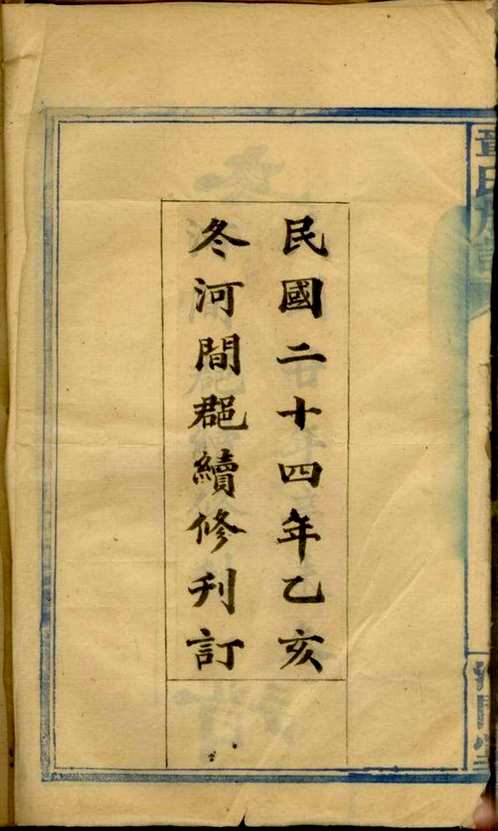 民國二十四年乙亥
冬河間郡續修刊訂
章氏